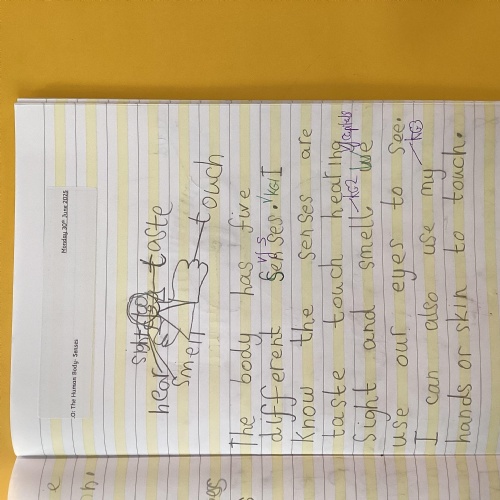 Monday 30th June 2025
LO: The Human Body- Senses
sight
hear taste
smell touch
The body has five
different senses. I
v s
KG1
know the senses are
taste touch hearing
capitals
Sight and smell we
KG2
use our eyes to See.
KG3
I can also use my
hands or skin to touch.
e